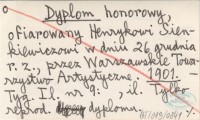 Dyplom honorowy,
ofiarowany Henrykowi Sien-
kiewiczowi w dniu 26 grudnia
r. z., przez Warszawskie Towa-
rzystwo Artystyczne. 1901. –
Tyg. Il. nr 9. , il. Tylko
reprod. dyplomu.